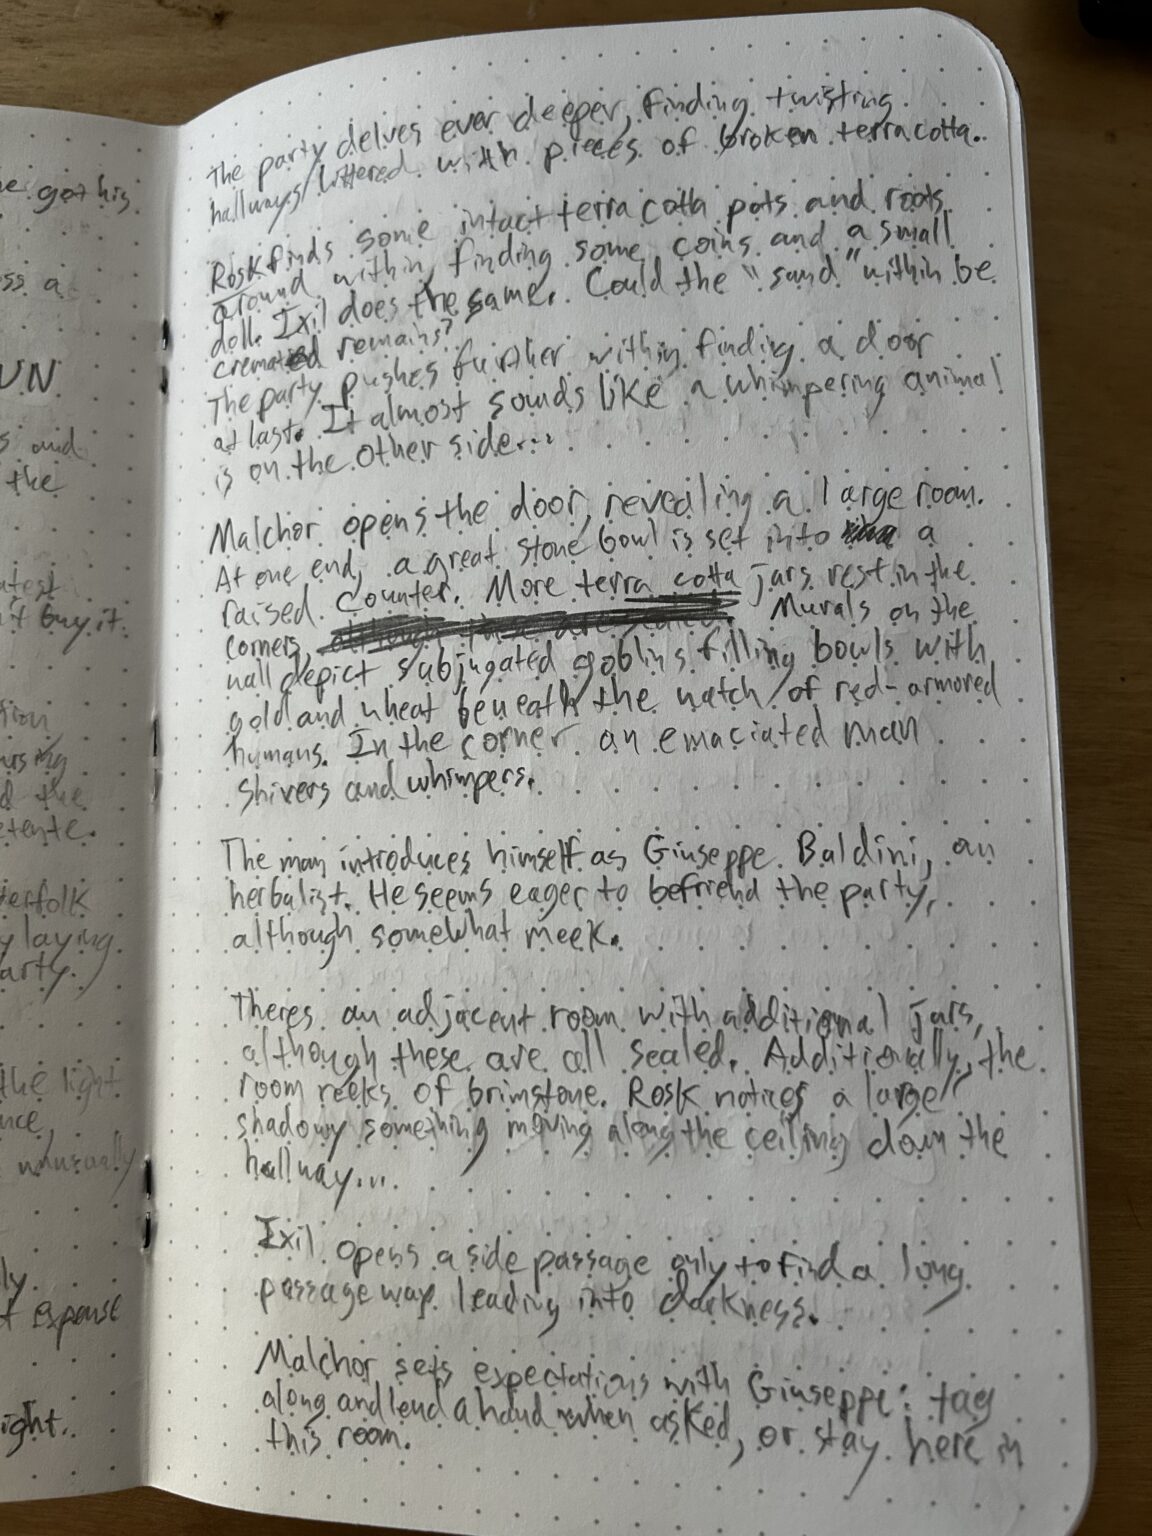 e got his
ss a
UN
s and
the
atest
't buy it.
tion
d the
erfolk
y laying
arty.
the light
nce,
unusually
ly.
t expense
ight.
The party delves ever deeper, finding twisting
hallways littered with pieces of broken terra cotta.
Rosk finds some intact terra cotta pots and roots
around within, finding some coins and a small
doll. Ixil does the same. Could the "sand" within be
cremated remains?
The party pushes further within, finding a door
at last. It almost sounds like a whimpering animal
is on the other side...
Malchor opens the door, revealing a large room.
At one end, a great stone bowl is set into a
raised counter. More terra cotta jars rest in the
corners. Murals on the
wall depict subjugated goblins filling bowls with
gold and wheat beneath the watch of red-armored
humans. In the corner an emaciated man
shivers and whimpers.
The man introduces himself as Giuseppe Baldini, an
herbalist. He seems eager to befriend the party,
although somewhat meek.
Theres an adjacent room with additional jars,
although these are all sealed. Additionally, the
room reeks of brimstone. Rosk notices a large
shadowy something moving along the ceiling down the
hallway...
Ixil opens a side passage only to find a long
passage way leading into darkness.
Malchor sets expectations with Giuseppe: tag
along and lend a hand when asked, or stay here in
this room.